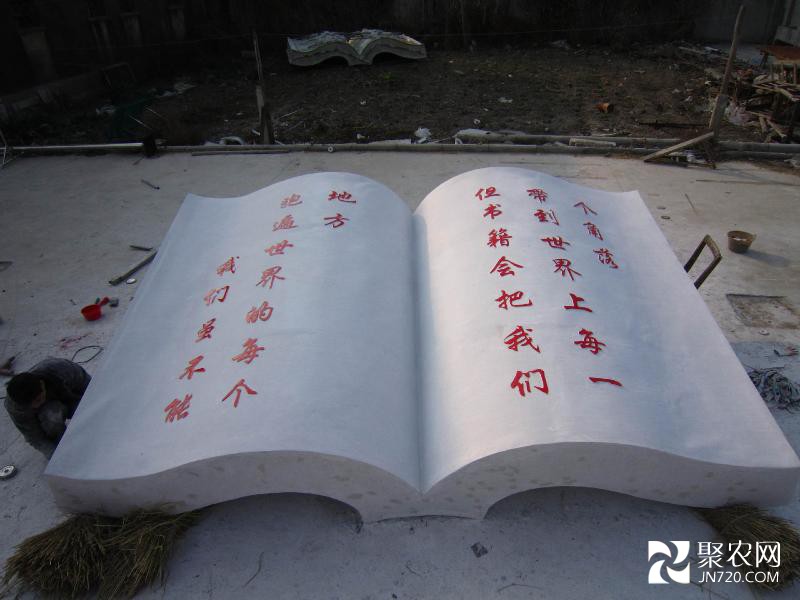 我们虽不能
跑遍世界的每个
地方
但书籍会把我们
带到世界上每一
个角落
聚农网
JN720.COM